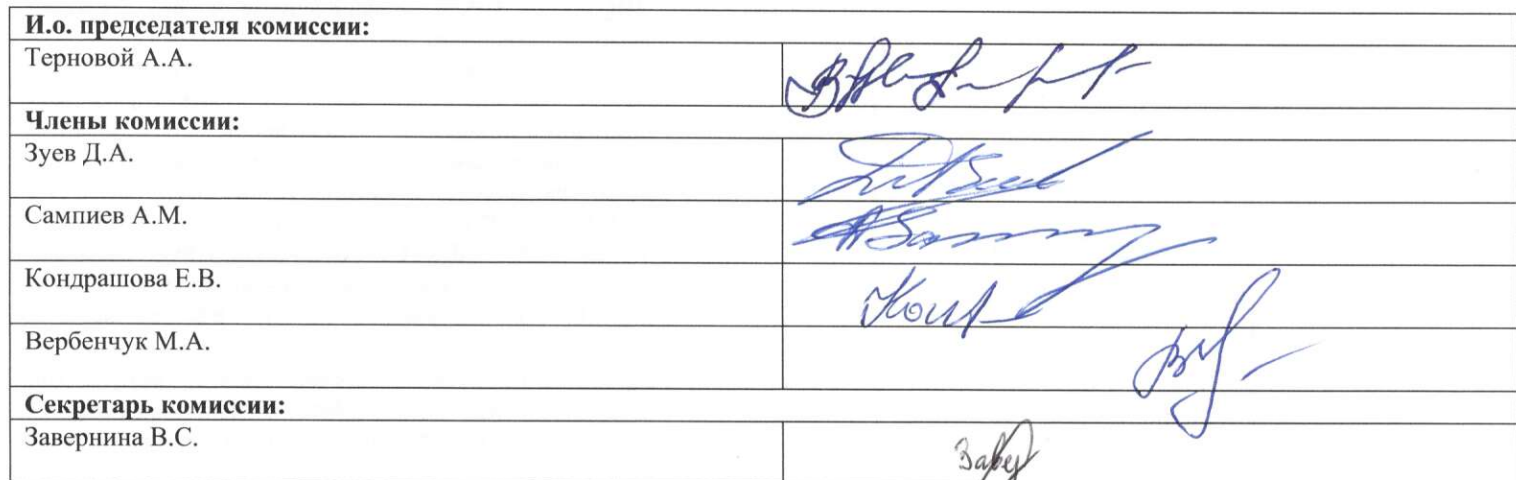 И.о. председателя комиссии:
Терновой А.А.
Члены комиссии:
Зуев Д.А.
Сампиев А.М.
Кондрашова Е.В.
Вербенчук М.А.
Секретарь комиссии:
Завернина В.С.